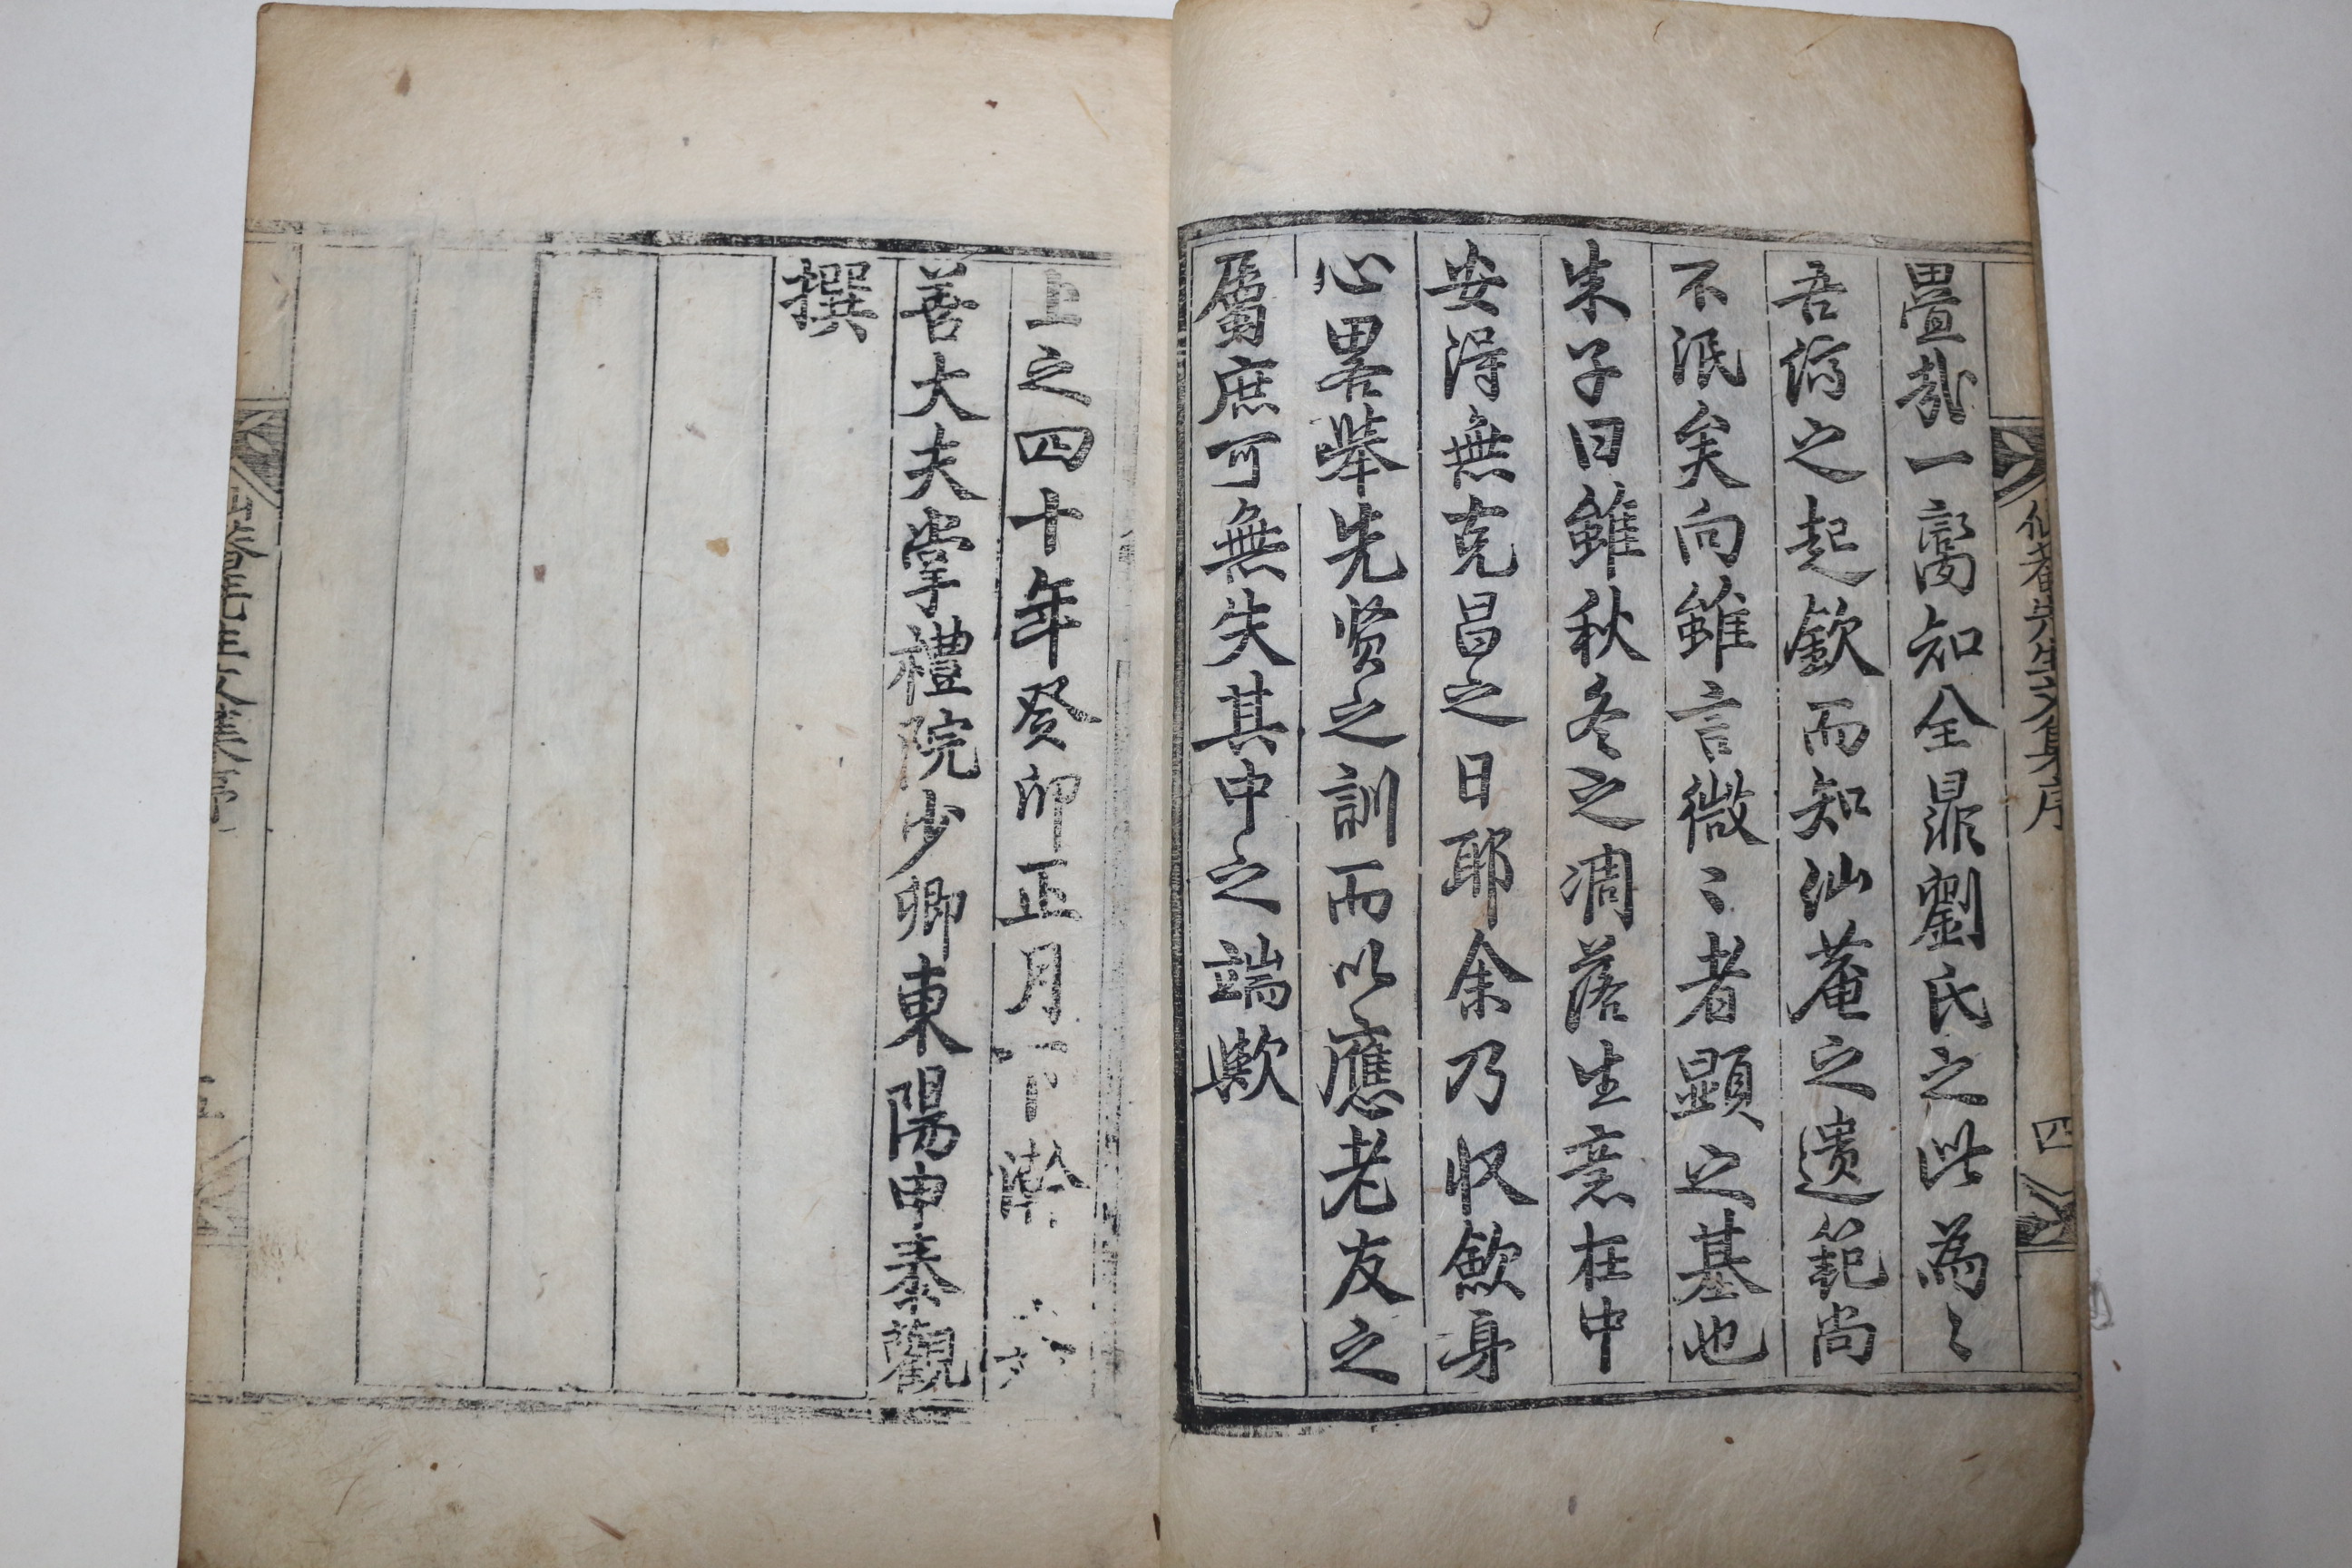 畳哉一臠知全鼎劉氏之此為〻
吾儕之起欽而知汕菴之遺範尚
不泯矣向雖言微〻者顕之基也
朱子曰雖秋冬之凋落生意在中
安淂無克昌之日耶余乃収斂身
心畧擧先贤之訓而以應老友之
屬庶可無失其中之端歟
汕菴先生文集序
四
上之四十年癸卯正月下澣
善大夫掌禮院少卿東陽申泰觀
撰